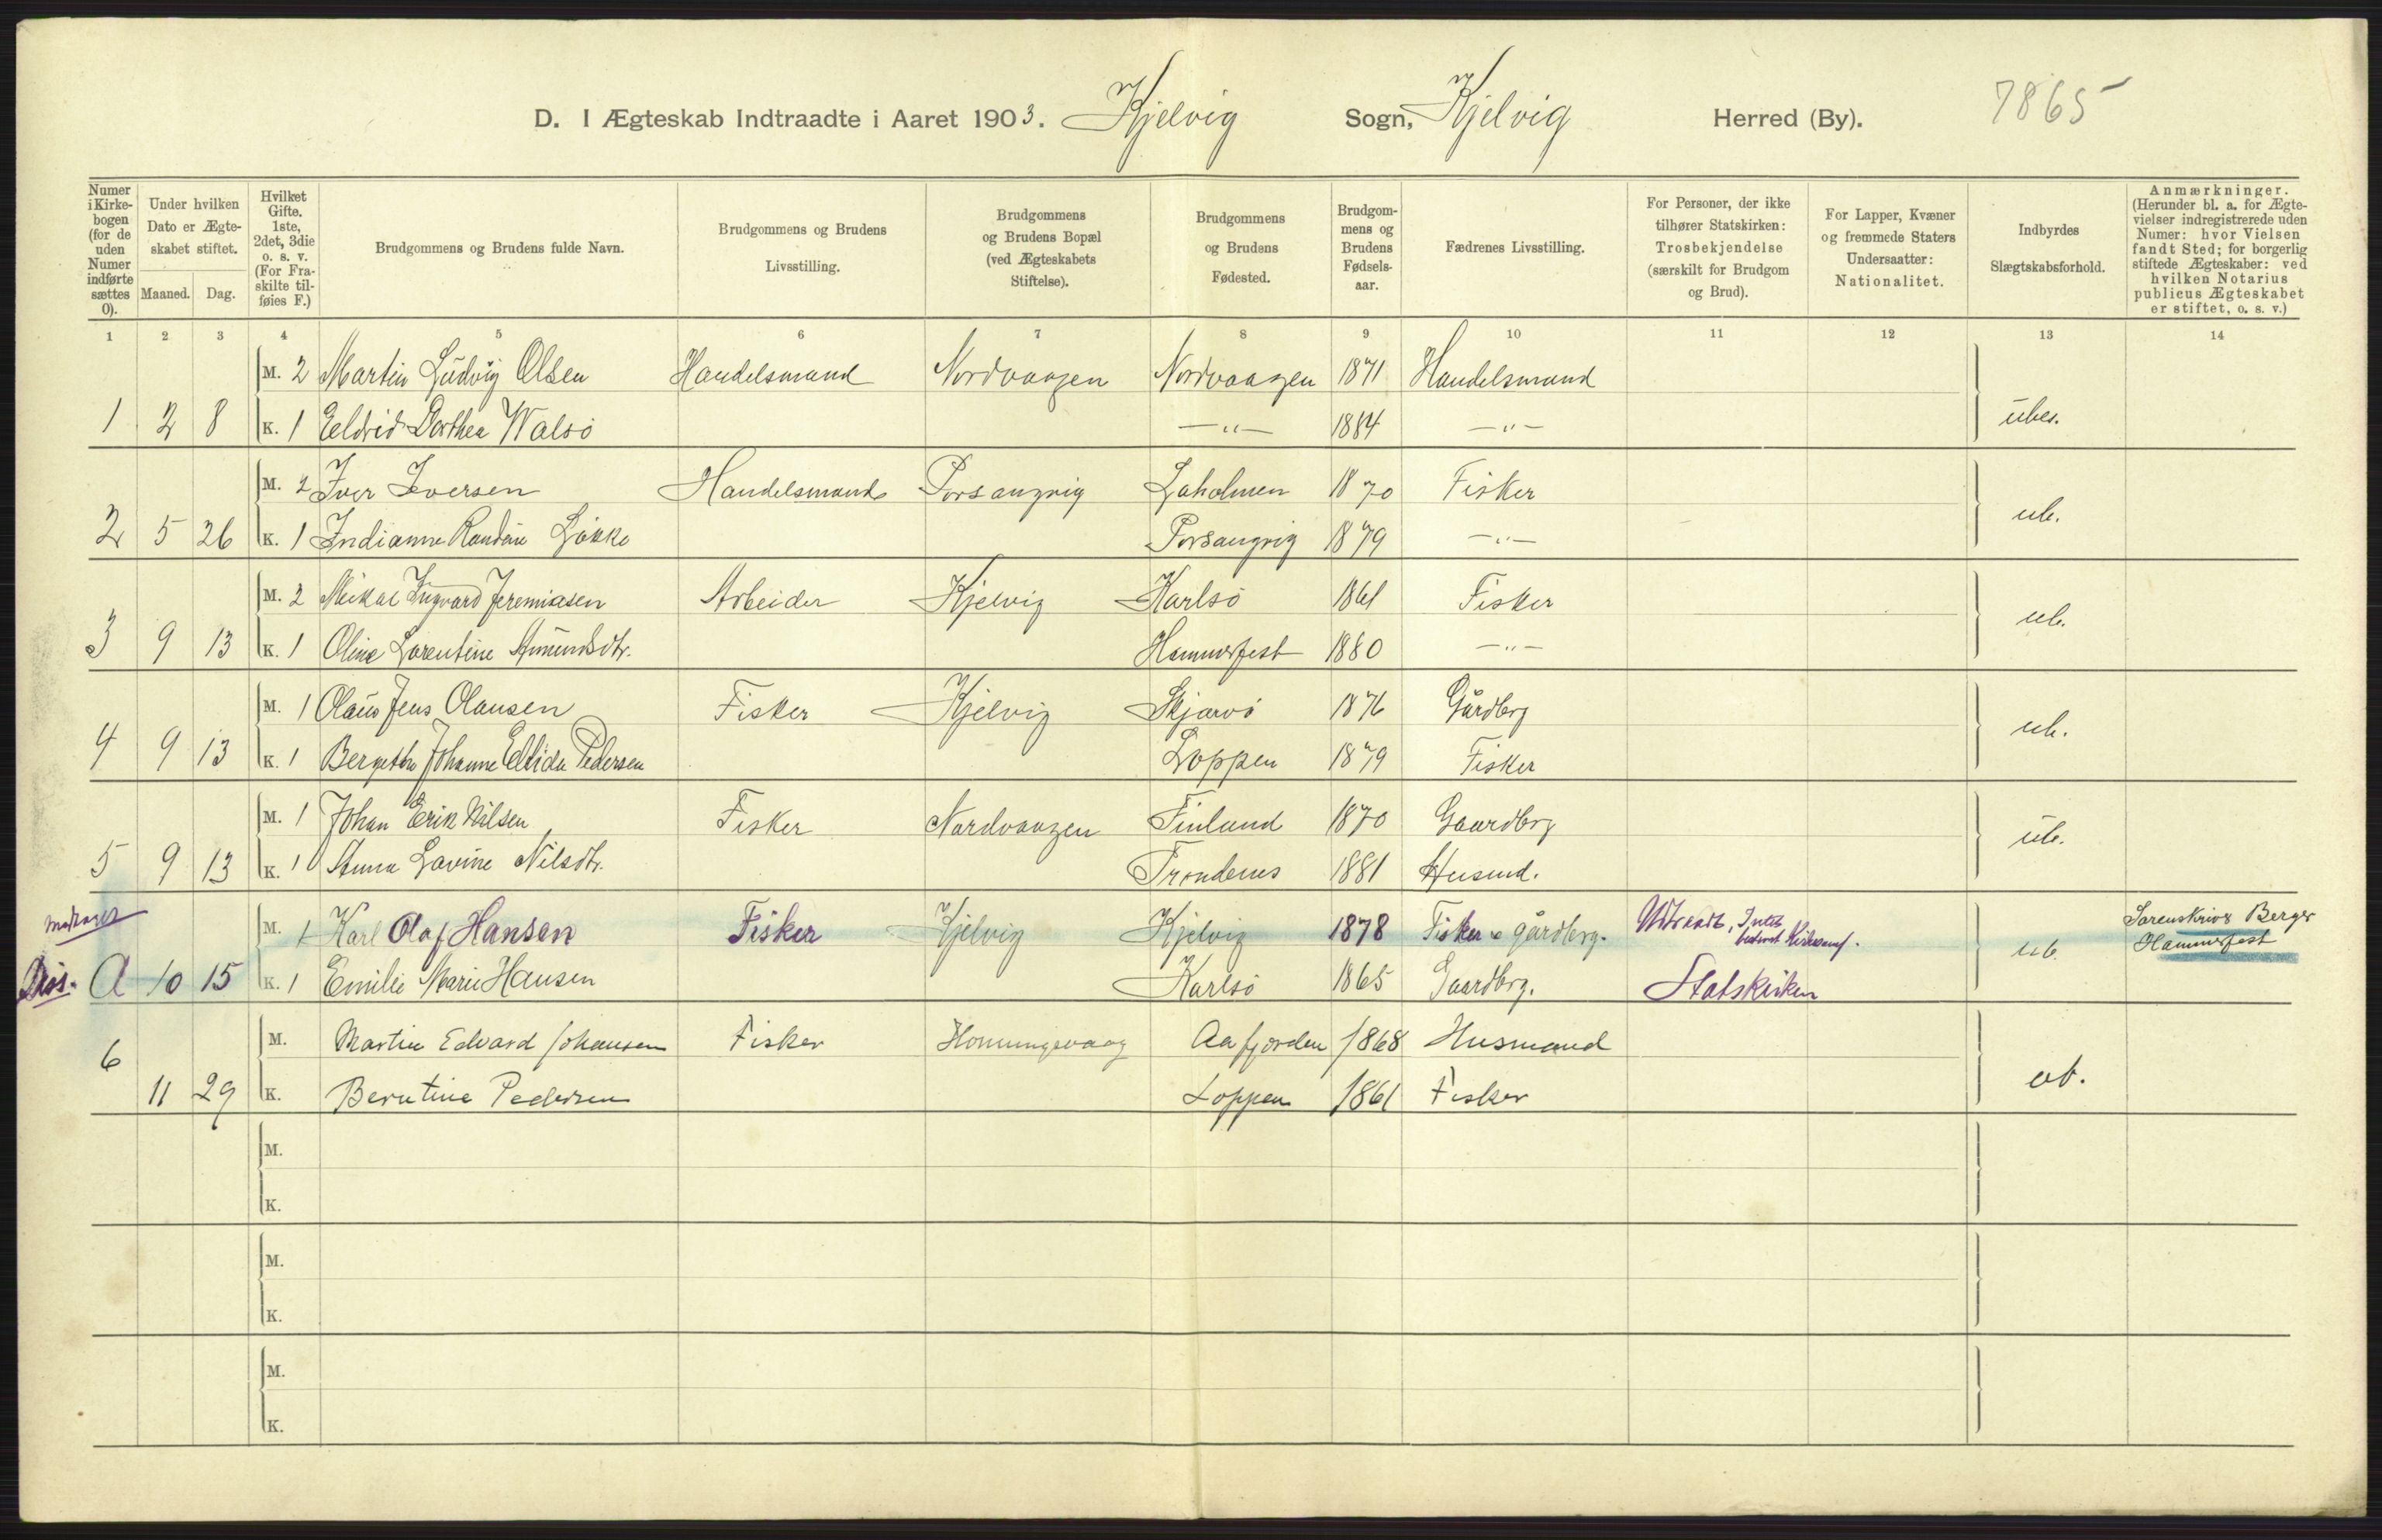 D. I Ægteskab Indtraadte i Aaret 1903. Kjelvig Sogn, Kjelvig Herred (By). 7865
Numer i Kirke-bogen (for de uden Numer indførte sættes 0).
Under hvilken Dato er Ægte-skabet stiftet.
Maaned. Dag.
Hvilket Gifte. 1ste, 2det, 3die o. s. v. (For Fra-skilte til-føies F.)
Brudgommens og Brudens fulde Navn.
Brudgommens og Brudens Livsstilling.
Brudgommens og Brudens Bopæl (ved Ægteskabets Stiftelse).
Brudgommens og Brudens Fødested.
Brudgom-mens og Brudens Fødsels-aar.
Fædrenes Livsstilling.
For Personer, der ikke tilhører Statskirken: Trosbekjendelse (særskilt for Brudgom og Brud).
For Lapper, Kvæner og fremmede Staters Undersaatter: Nationalitet.
Indbyrdes Slægtskabsforhold.
Anmærkninger. (Herunder bl. a. for Ægte-vielser indregistrerede uden Numer: hvor Vielsen fandt Sted; for borgerlig stiftede Ægteskaber: ved hvilken Notarius publicus Ægteskabet er stiftet, o. s. v.)
1 2 3 4 5 6 7 8 9 10 11 12 13 14
M. 2 Martin Ludvig Olsen Handelsmand Nordvaagen Nordvaagen 1871 Handelsmand
1 2 8 K. 1 Eeldrid Dorthea Walsö —"— 1884 —"— ubes.
M. 2 Iver Iversen Handelsmand Porsangvig Laholmen 1870 Fisker
2 5 26 K. 1 Indianne Randine Løkke Porsangvig 1879 —"— ub.
M. 2 Mikal Ingvard Jeremiasen Arbeider Kjelvig Karlsö 1861 Fisker
3 9 13 K. 1 Oline Lorentine Amundsdtr. Hammerfest 1880 —"— ub.
M. 1 Olaus Jens Olausen Fisker Kjelvig Skjærvö 1876 Gårdbrg
4 9 13 K. 1 Bergethe Johanne Ellida Pedersen Loppen 1879 Fisker ub.
M. 1 Johan Erik Nilsen Fisker Nordvaagen Finland 1870 Gaardbrg
5 9 13 K. 1 Anna Lovine Nilsdtr. Trondenes 1881 Husmd. ub.
M. 1 Karl Olaf Hansen Fisker Kjelvig Kjelvig 1878 Fisker & gårdbrg. Udtraadt, Intet bestemt Kirkesamf. Sorenskriver Berger Hammerfest
Diss. 10 15 K. 1 Emilie Marie Hansen Karlsö 1865 Gaardbrg. Statskirken ub.
6 M. Martin Edvard Johansen Fisker Honningsvaag Aafjorden 1868 Husmand
11 29 K. Berntine Pedersen Loppen 1861 Fisker ub.
M.
K.
M.
K.
M.
K.